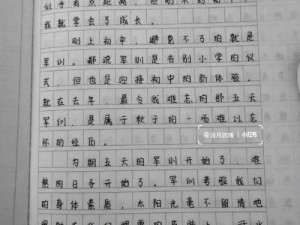 我就学会了成长。
刚上初中，避免不了的就是
军训。都说军训是告别小学的仪
式，但也是迎接初中的新体验。
就在去年，最令我难忘的那五天
军训，是属于软子的一场难以忘
怀的经历。
为期五天的军训开始了，难
熬的日子开始了。军训考验我们
的身体素质，太阳光毫不留情地
小红书